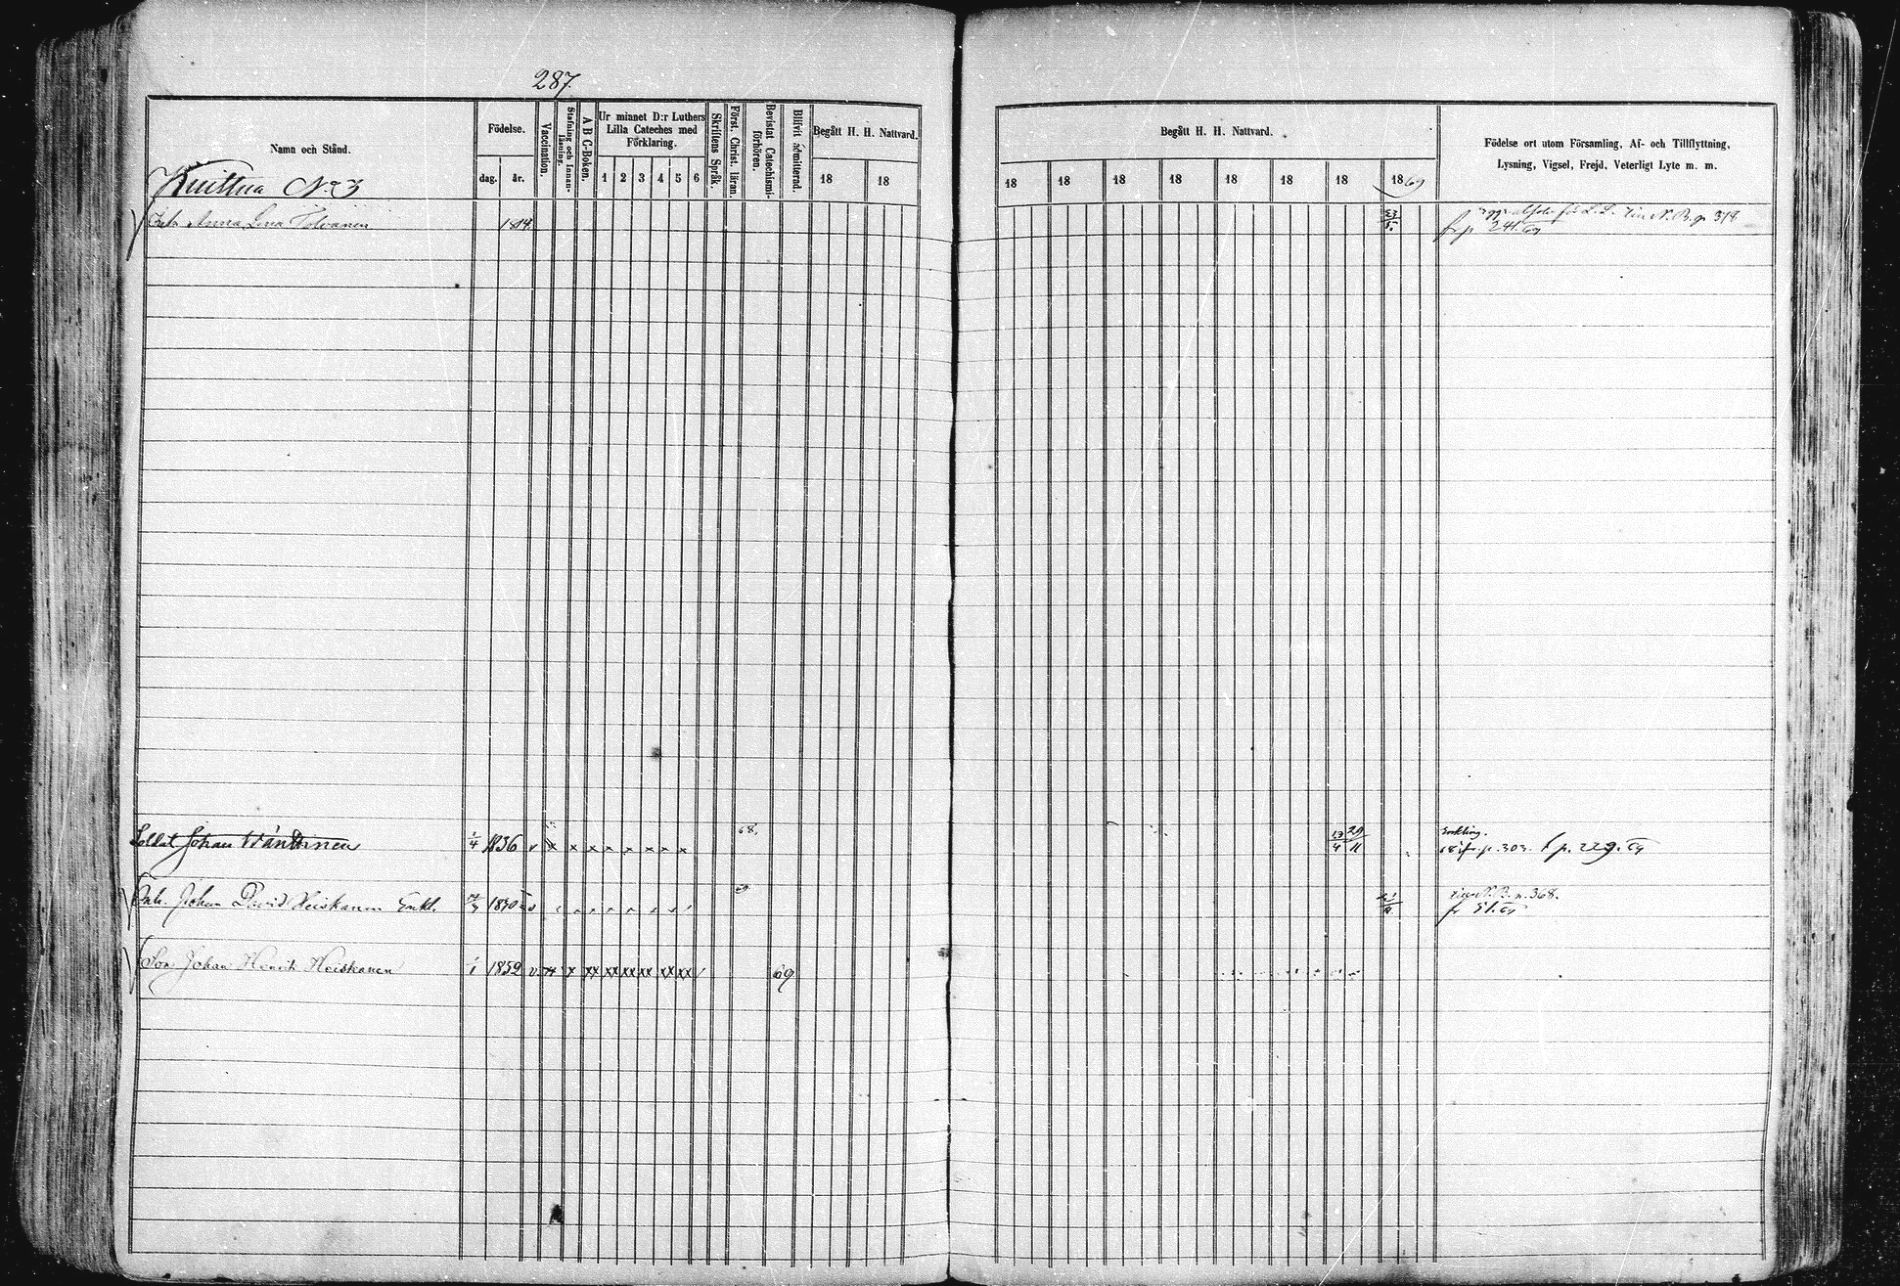 287.
Namn och Stånd.
Födelse.
dag. år.
Vaccination.
Stafning och Innan-läsning.
A B C-Boken.
Ur minnet D:r Luthers
Lilla Cateches med
Förklaring.
1 2 3 4 5 6
Skriftens Språk.
Först. Christ. läran.
Bevistat Catechismi-förhören.
Blifvit admitterad.
Begått H. H. Nattvard.
18 18
Begått H. H. Nattvard.
18 18 18 18 18 18 18 1869
Födelse ort utom Församling, Af- och Tillflyttning,
Lysning, Vigsel, Frejd, Veterligt Lyte m. m.
Kuittua No 3
Anna Lena Tolvanen 1814 23/5 p. 318
241.69
Soldat Johan Väntinen 1/4 1836 v x x x x x x x x 68. 13/4 29/11 Enkling.
p. 303. p. 229. 69
Johan David Heiskanen Enkl. 1830 69 N. B. p. 368.
fr 51.69
Son Johan Henrik Heiskanen 1/1 1852 v. x xx xx xx xx xx xx 69